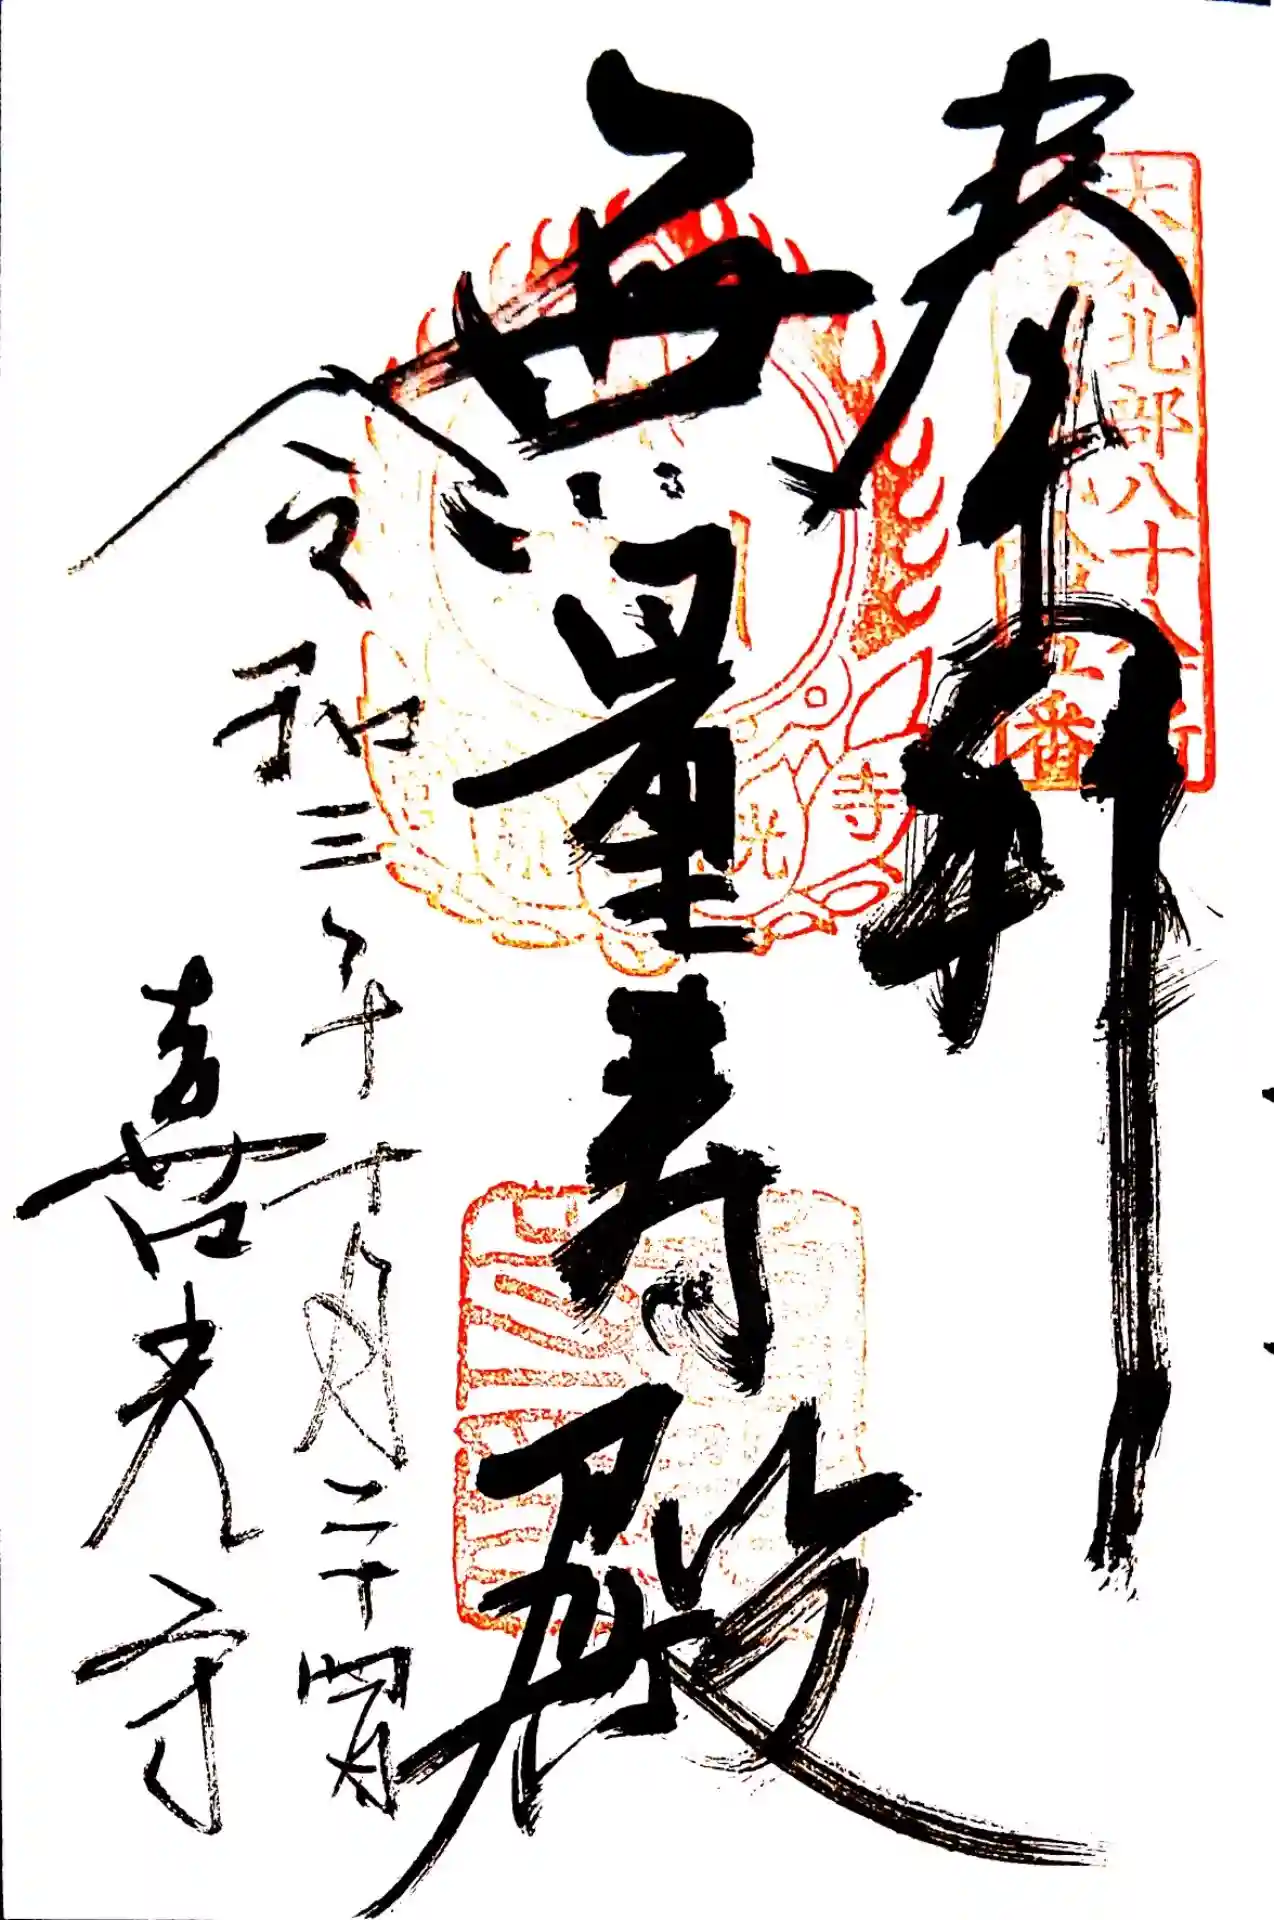 大和北部八十八ヶ所
番
奉拝
無量寿殿
菅原 光寺
令和三年十月二十四日
喜光寺